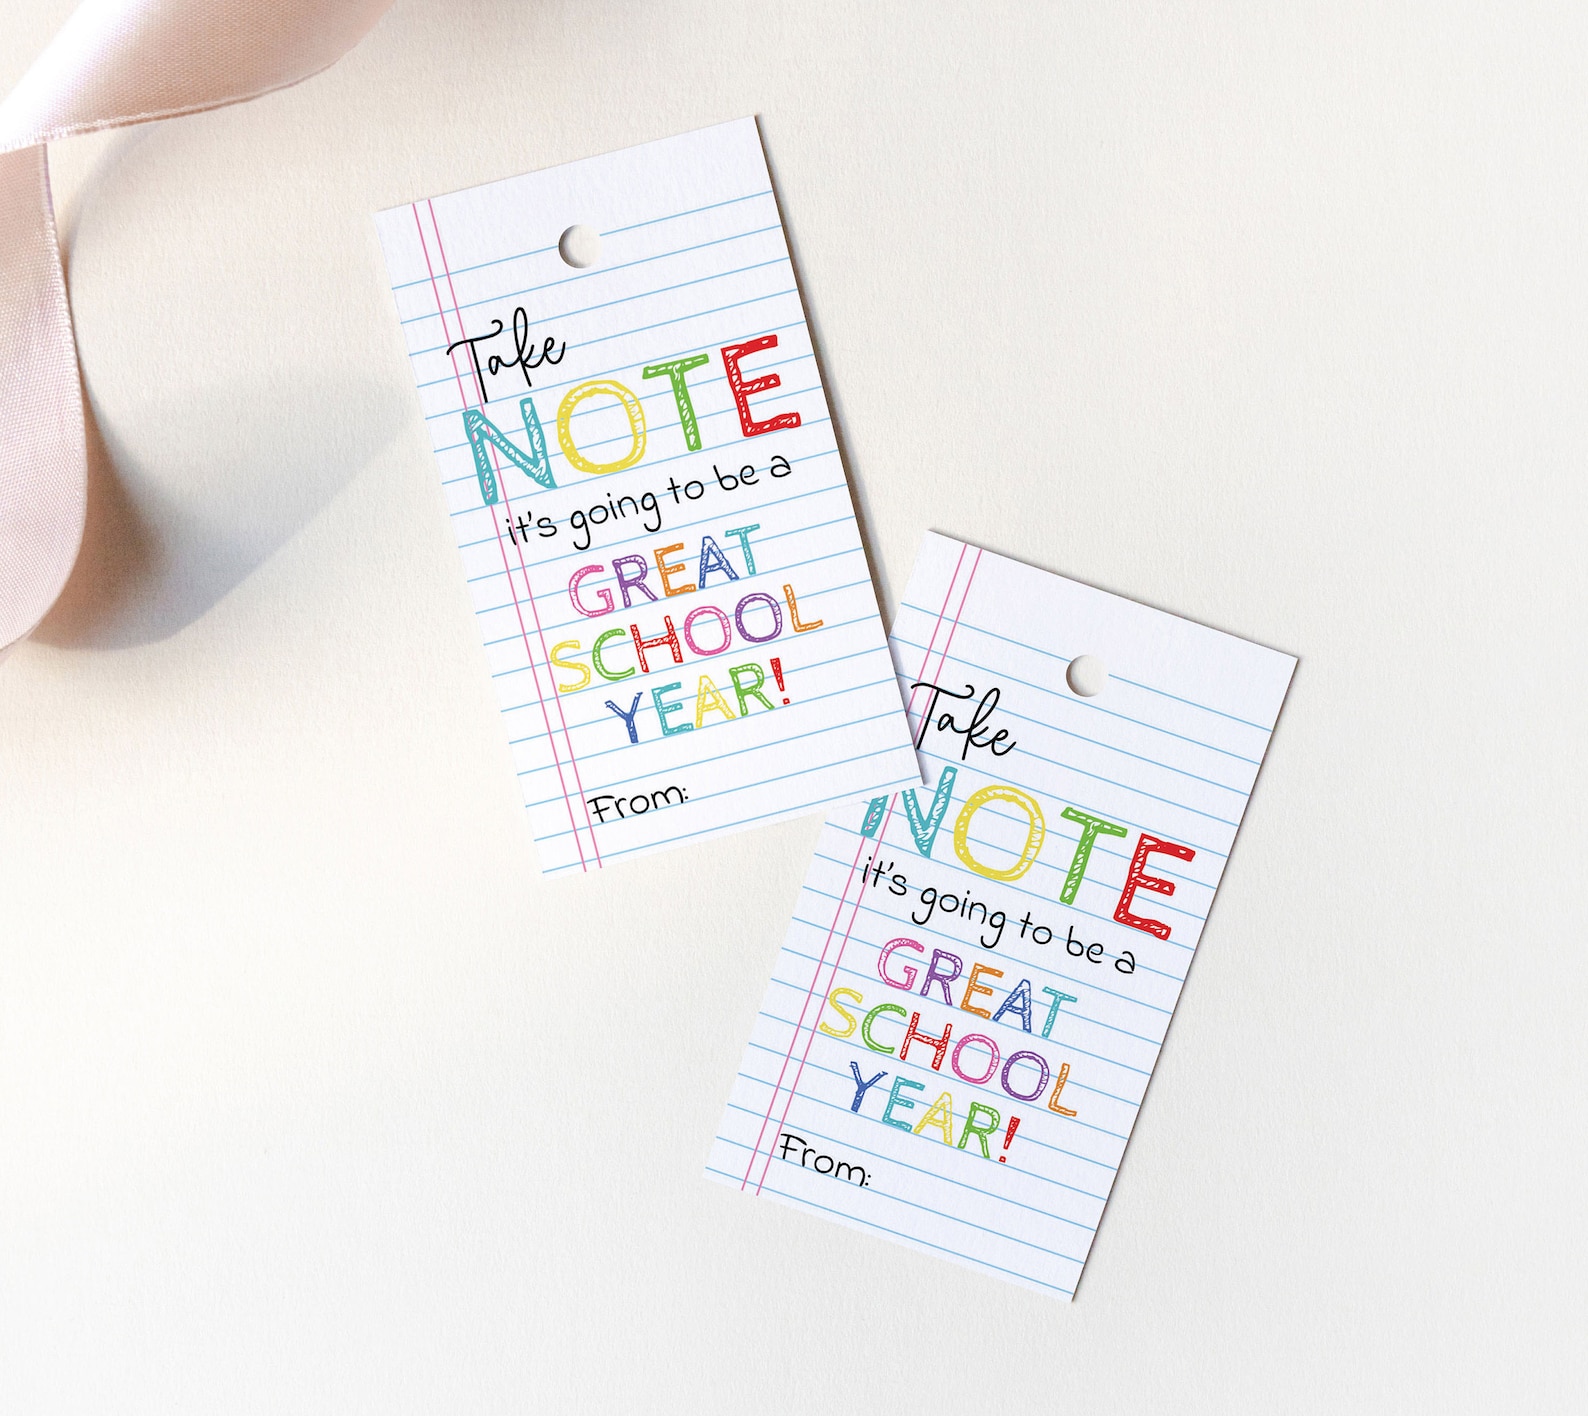 Take
NOTE
it's going to be a
GREAT
SCHOOL
YEAR!
From:
Take
NOTE
it's going to be a
GREAT
SCHOOL
YEAR!
From: